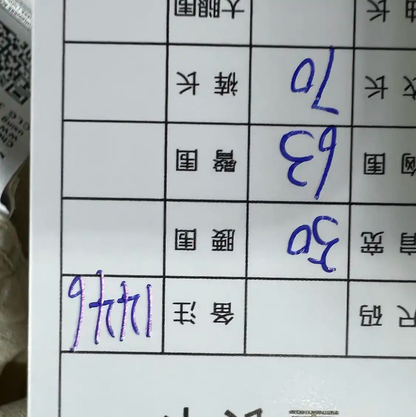 尺码 备注
肩宽 50 腰围
胸围 63 臀围
衣长 70 裤长
袖长 大腿围